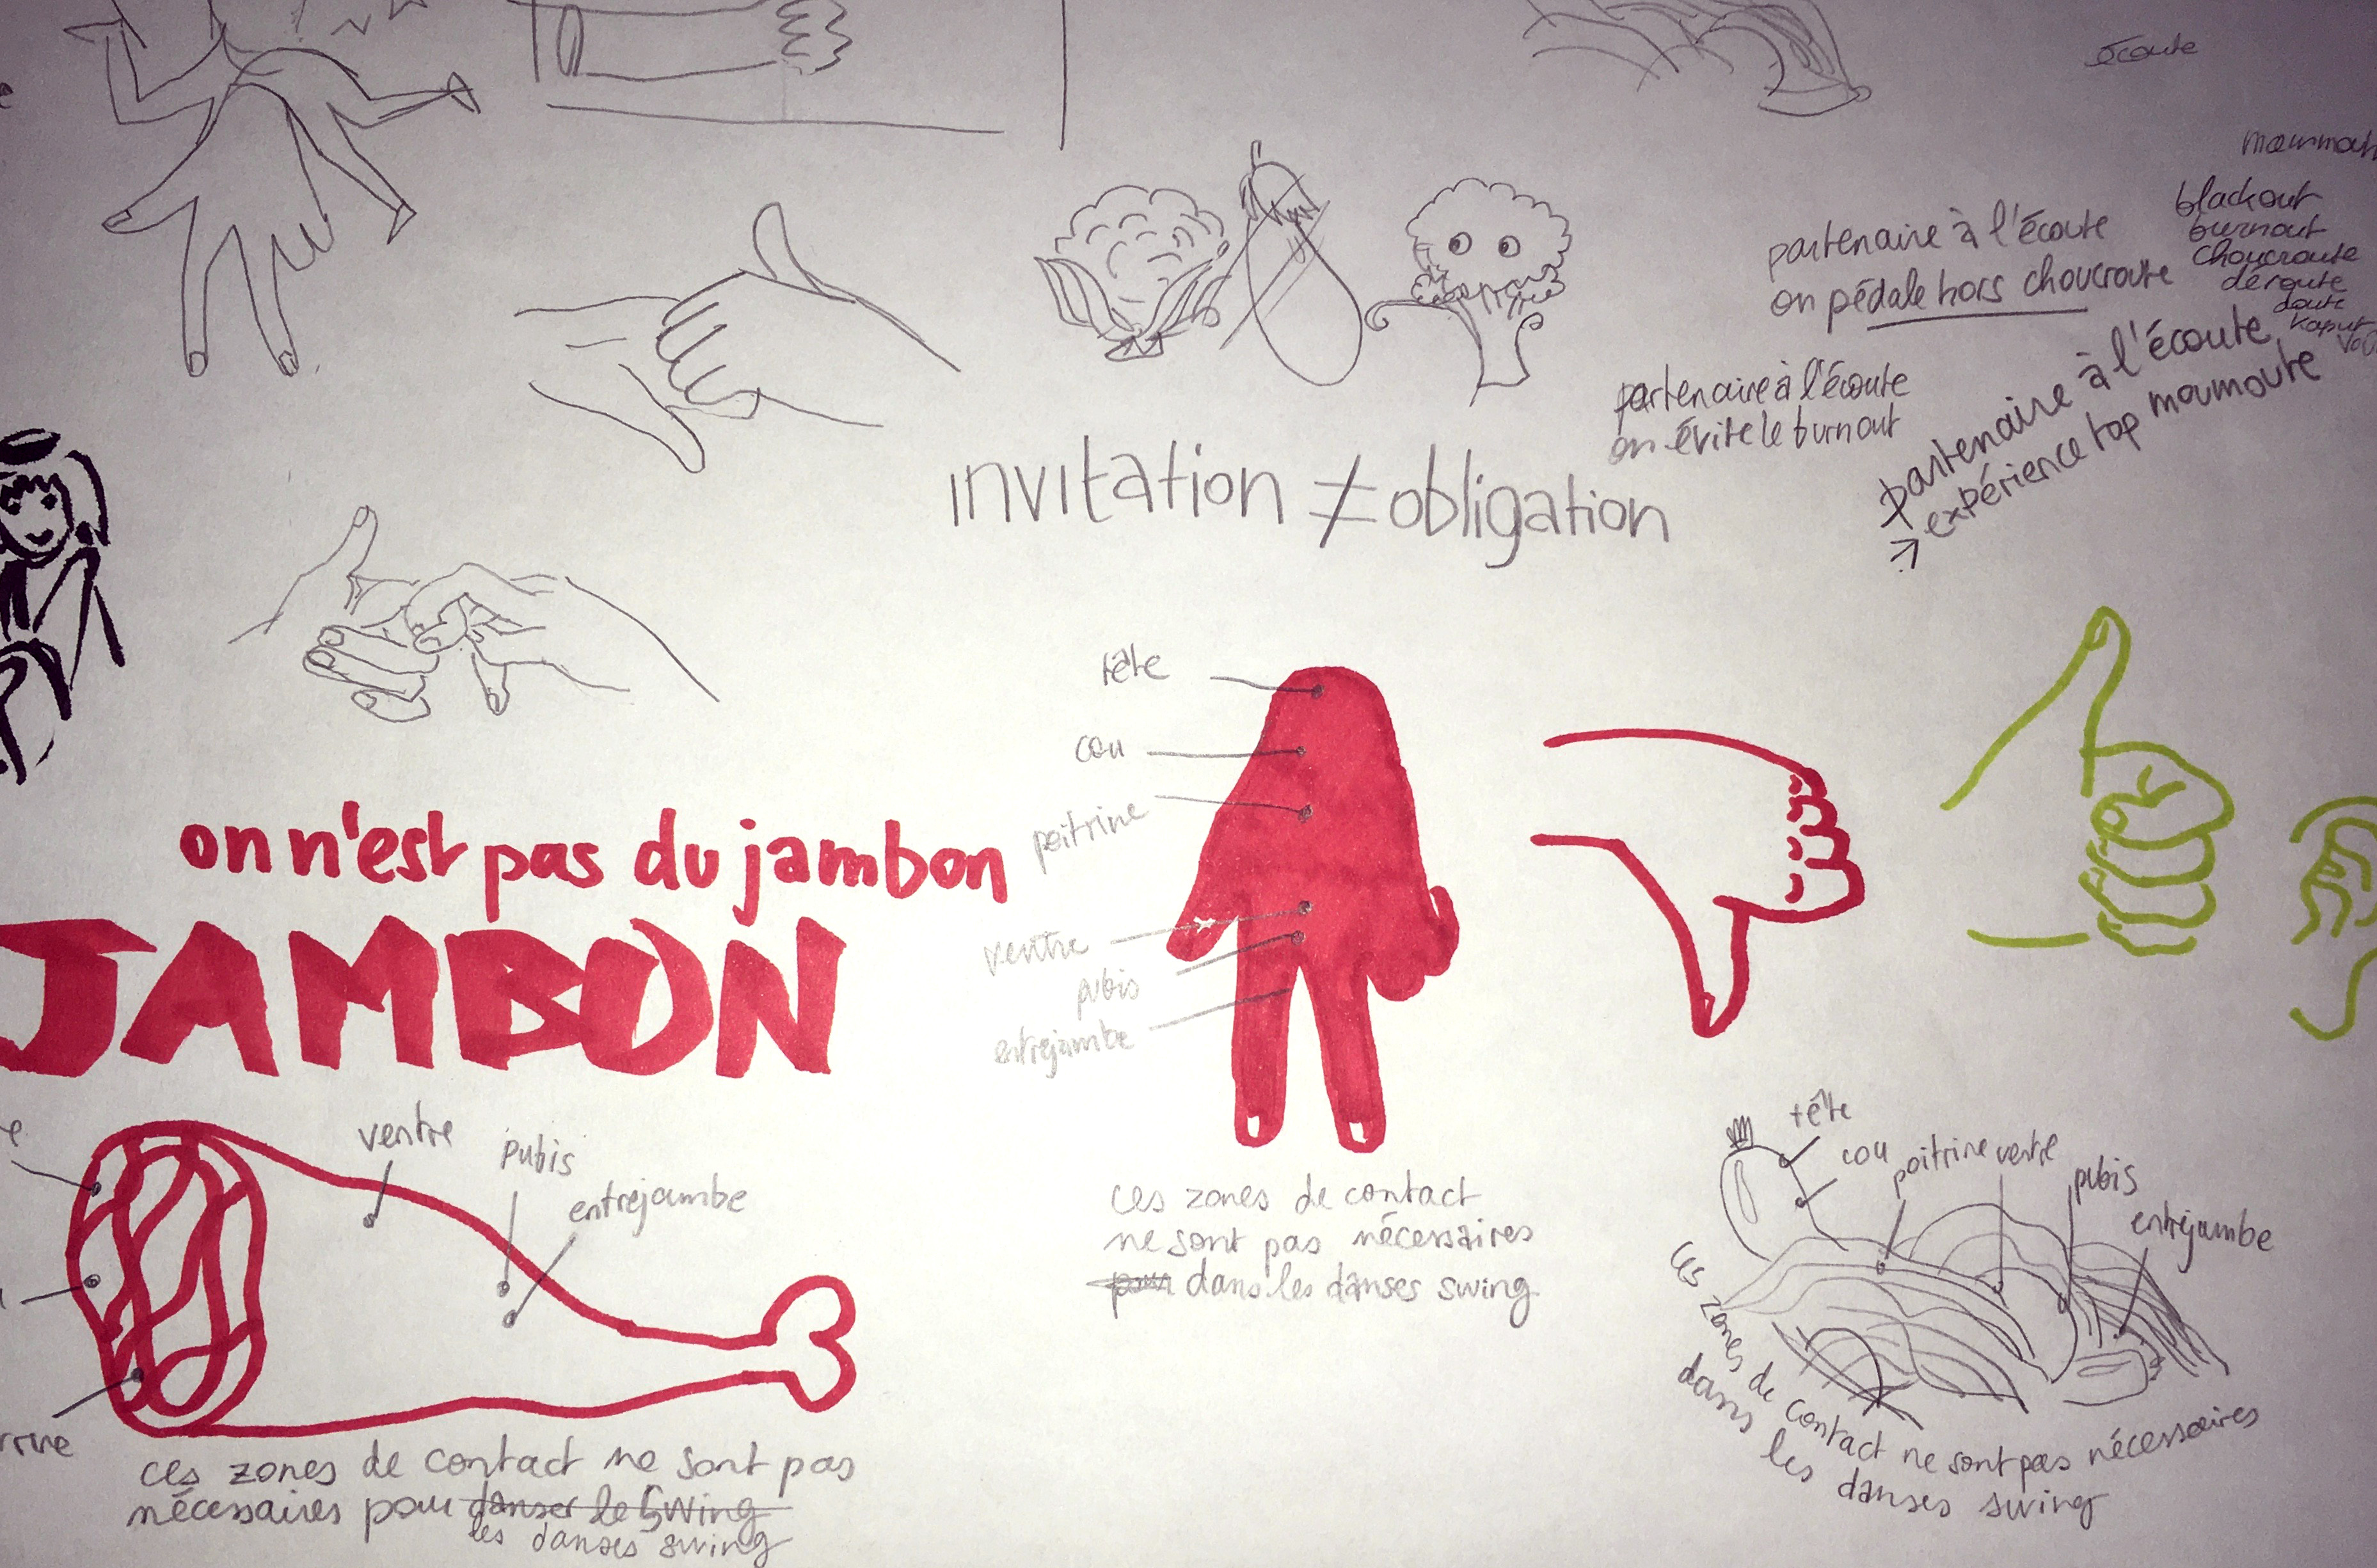 écoute
blackout
burnout
choucroute
déroute
doute
kaput
partenaire à l'écoute
on pédale hors choucroute
partenaire à l'écoute
on évite le burnout
partenaire à l'écoute
→ expérience top moumoute
invitation ≠ obligation
tête
cou
poitrine
ventre
pubis
entrejambe
on n'est pas du jambon
JAMBON
ventre
pubis
entrejambe
ces zones de contact ne sont pas
nécessaires pour danser le swing
les danses swing
ces zones de contact
ne sont pas nécessaires
pour dans les danses swing
tête
cou
poitrine
ventre
pubis
entrejambe
ces zones de contact ne sont pas nécessaires
dans les danses swing